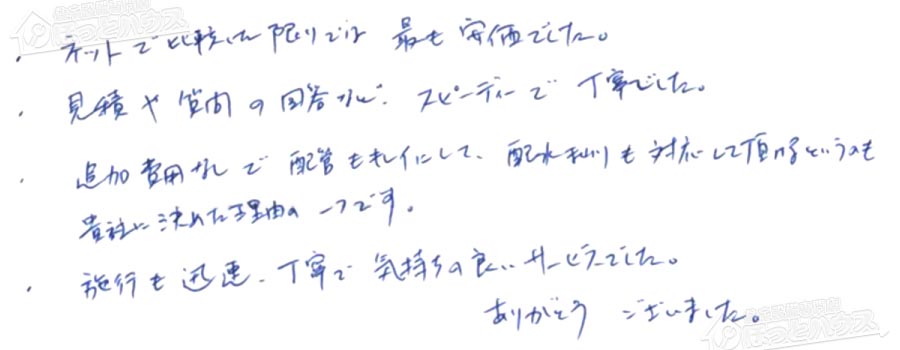 ・ ネットで比較した限りでは 最も安価でした。
・ 見積や質問の回答など、スピーディーで丁寧でした。
・ 追加費用なしで配管もキレイにして、配水も対応して頂けるというのも
貴社に決めた理由の一つです。
・ 施行も迅速、丁寧で気持ちの良いサービスでした。
ありがとう ございました。
ほっとハウス
ほっとハウス